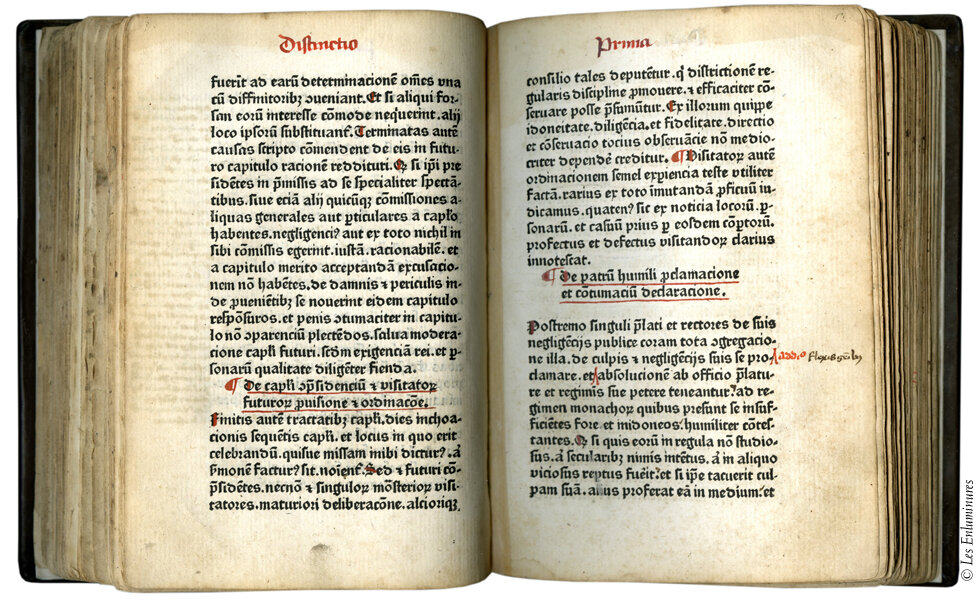 Distinctio
fuerīt ad earū determinacionē om̄es vna
cū diffinitoribꝫ ꝯueniant. Et si aliqui for-
san eorū interesse cōmode nequerint. alij
loco ipsorū substituant᷑. Terminatas autē
causas scripto cōmendent de eis in futu
ro capitulo racionē reddituri. Qꝫ si ip̄i pre
sidētes in p̄missis ad se specialiter spectā-
tibus. siue eciā alij quicūqꝫ cōmissiones a-
liquas generales aut ꝑticulares a cap̄lo
habentes. negligenciꝰ aut ex toto nichil in
sibi cōmissis egerint. iustā. racionabilē. et
a capitulo merito acceptandā excusacio-
nem nō habētes. de damnis et periculis in-
de ꝓueniētibꝫ se nouerint eidem capitulo
respōsuros. et penis ꝯtumaciter in capitu
lo nō ꝯparenciū plectēdos. salua modera-
cione cap̄li futuri. scd̄m exigenciā rei. et ꝑ-
sonarū qualitate diligēter fienda.
¶ De cap̄li ꝯp̄sidenciū ⁊ visitatoꝝ
futuroꝝ ꝓuisione ⁊ ordinacōne.
Finitis autē tractatibꝫ cap̄li. dies inchoa-
cionis sequētis cap̄li. et locus in quo erit
celebrandū. quisue missam inibi dicturꝰ. a̅
ẜmonē facturꝰ sit. noīent᷑. Sed ⁊ futuri cō-
p̄sidētes. necnō ⁊ singuloꝝ mōsterioꝝ visi-
tatores. maturiori deliberacōne. alcioriqꝫ
Prima
consilio tales deputētur. ꝙ districtionē re-
gularis discipline ꝓmouere. ⁊ efficaciter cō-
seruare posse p̄sumūtur. Ex illorum quippe
idoneitate. diligēcia. et fidelitate. directio
et cōseruacio tocius obseruācie nō medio-
criter dependē creditur. ¶ Visitatoꝝ autē
ordinacionem semel expiencia teste vtiliter
factā. rarius ex toto īmutandā ꝓficuū iu-
dicamus. quatenꝰ sic ex noticia locorū. ꝑ-
sonarū. et casuū prius ꝑ eosdem cōptorū.
profectus et defectus visitandoꝝ clarius
innotescat.
¶ De patrū humili ꝓclamacione
et cōtumaciū declaracione.
Postremo singuli p̄lati et rectores de suis
negligēcijs publice coram tota ꝯgregacio-
ne illa. de culpis ⁊ negligēcijs suis se pro-
clamare. et absolucionē ab officio p̄latu-
re et regimīs sue petere teneantur. ad re-
gimen monachoꝝ quibus presunt se insuf-
ficiētes fore. et inidoneos. humiliter cōtes-
tantes. Qꝫ si quis eorū in regula nō studio-
sus. a̅ secularibꝫ nimis intētus. a̅ in aliquo
viciosus reptus fuēit. et si ip̄e tacuerit cul-
pam suā. alius proferat eā in medium. et
addiō
© Les Enluminures